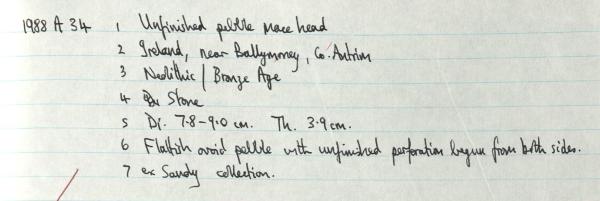 1988 A 34 1 Unfinished pebble mace head
2 Ireland, near Ballymoney, Co. Antrim
3 Neolithic / Bronze Age
4 Stone
5 Di. 7.8-9.0 cm. Th. 3.9 cm.
6 Flattish ovoid pebble with unfinished perforation begun from both sides.
7 ex Sandy collection.